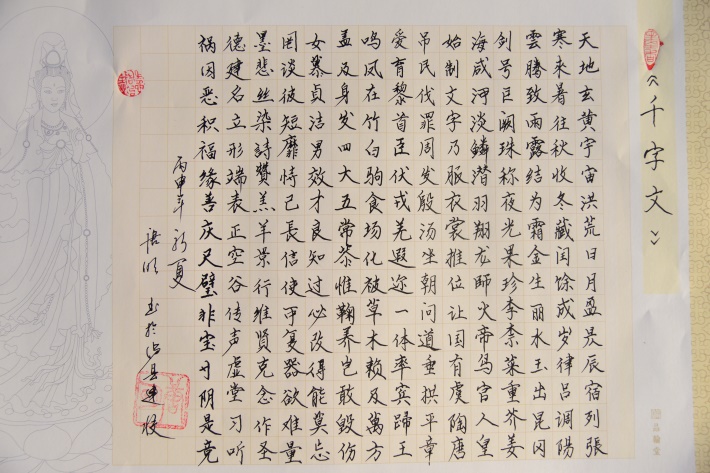 《千字文》
天地玄黄宇宙洪荒日月盈昃辰宿列張
寒来暑往秋收冬藏闰馀成岁律吕調陽
雲騰致雨露结为霜金生丽水玉出昆冈
剑号巨阙珠称夜光果珍李柰菜重芥姜
海咸河淡鳞潜羽翔龙師火帝鸟官人皇
始制文字乃服衣裳推位让国有虞陶唐
吊民伐罪周发殷汤坐朝问道垂拱平章
愛育黎首臣伏戎羌遐迩一体率宾歸王
鸣凤在竹白驹食场化被草木赖及萬方
盖及身发四大五常恭惟鞠养岂敢毁伤
女慕贞洁男效才良知过必改得能莫忘
罔谈彼短靡恃己長信使可复器欲难量
墨悲丝染詩贊羔羊景行維賢克念作圣
德建名立形端表正空谷传声虚堂习听
祸因恶积福缘善庆尺璧非宝寸阴是竞
丙申年初夏